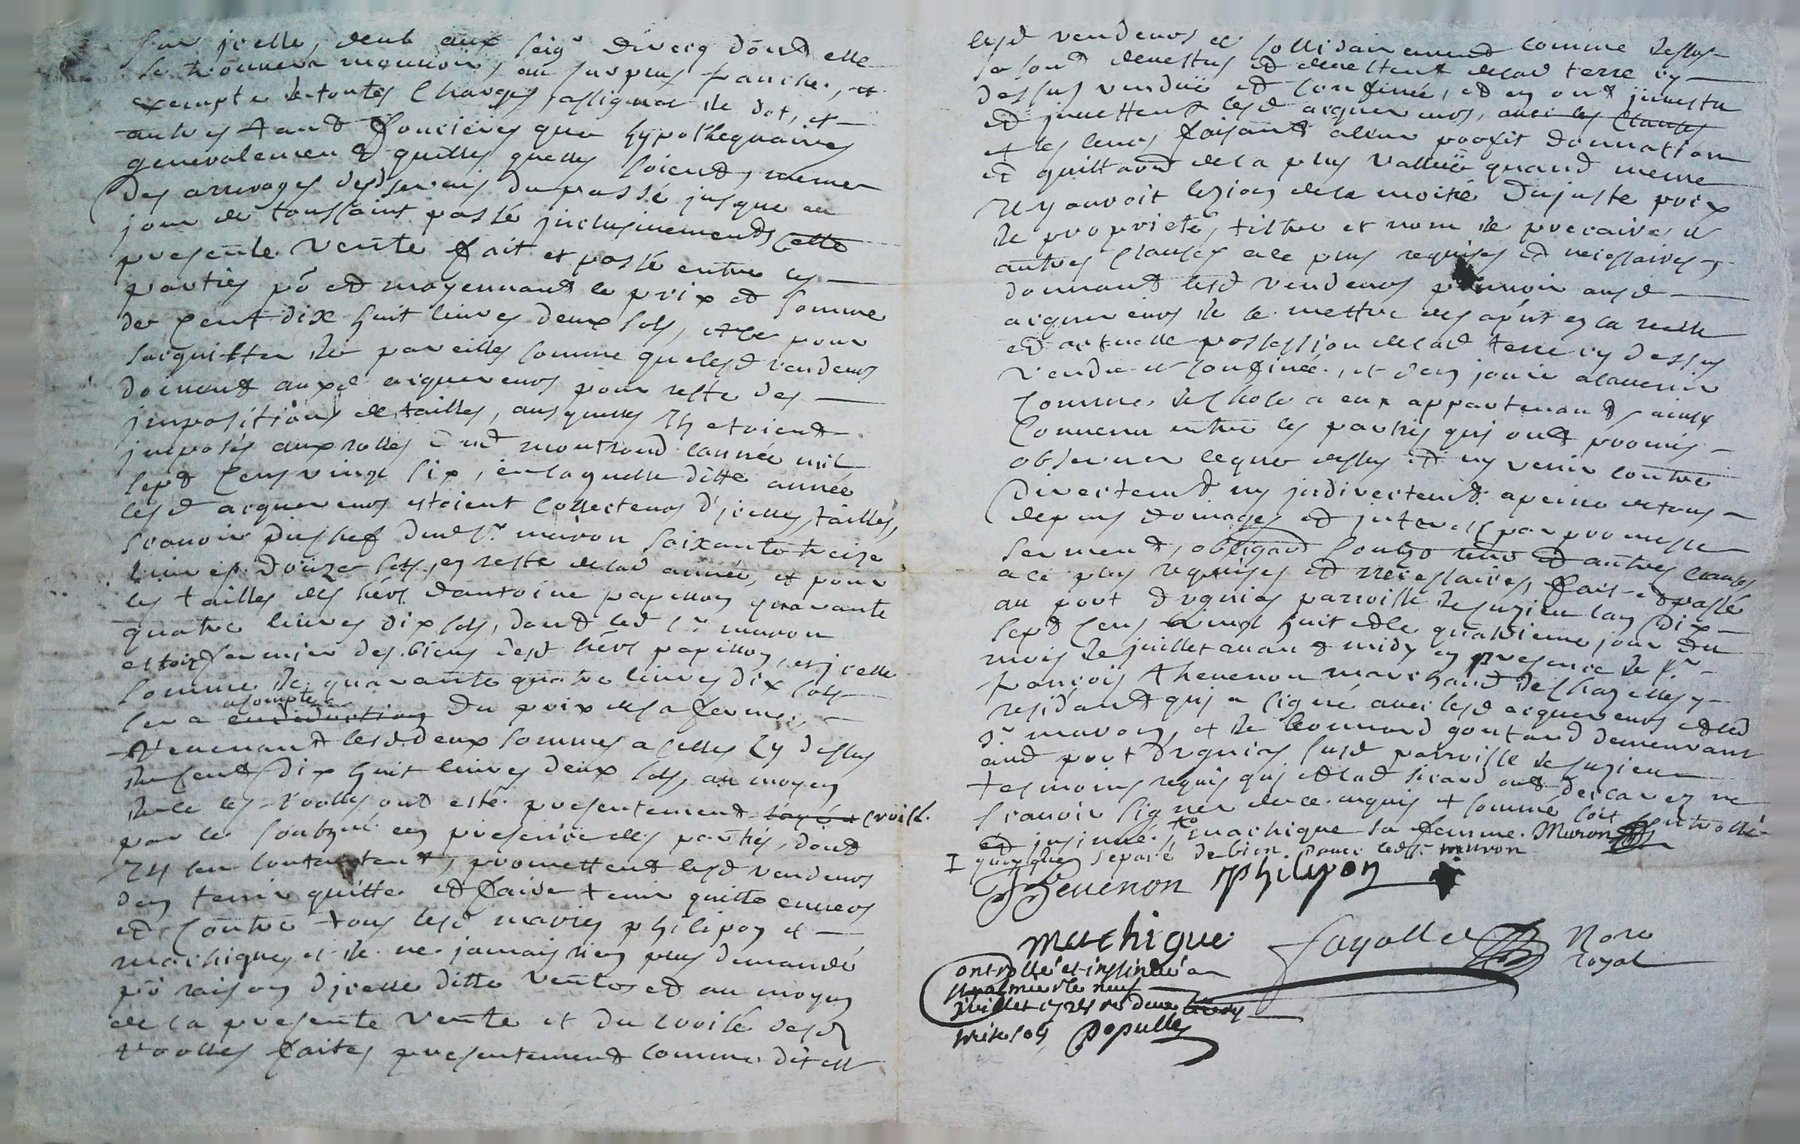 sur icelle, deub aux seigrs directs dont elle
se trouvera mouvoir, au surplus franche, et
exempte de toutes charges assignat de dot, et
autres tant foncieres que hypothequaires
generalement quelles quelles soient, meme
des arrerages desd servis du passé jusque au
jour de toussaint passé inclusivement, cette
presente vente fait et passé entre les
parties po et moyennant le prix et somme
de cent dix huit livres deux sols, et ce pour
saquitter de pareilles somme que lesd vendeurs
doivent auxd acquereurs pour reste des
impositions de tailles, ausquelles ils etoient
imposés aux rolles dud montrond lannée mil
sept cens vingt six, en laquelle ditte année
lesd acquereurs etoient collecteurs d'icelles tailles,
scavoir du chef dud sr muron soixante treize
livres douze sols, en reste de lad année, et pour
les tailles des hérs dantoine papillon quarante
quatre livres dix sols, dont led sr muron
estoit fermier des biens desd hérs papillon, et icelle
somme de quarante quatre livres dix sols
sera acompte en deduction du prix de sa ferme,
revenant lesd deux sommes a celles cy dessus
de cent dix huit livres deux sols, au moyen
de ce les roolles ont esté presentement rayé croisé
par le soubzné en presence des parties, dont
ils sen contentent, promettent lesd vendeurs
den tenir quitte et faire tenir quitte envers
et contre tous lesd mariés philipon et
machique, et de ne jamais rien plus demandé
po raison d'icelle ditte vente et au moyen
de la presente vente et du croisé desd
roolles faites presentement comme dit est
lesd vendeurs et sollidairement comme dessus
se sont devestus et devestent de lad terre cy
dessus venduë et confinée, et en ont investu
et investent lesd acquereurs, avec les clauses
et les leurs faisant a leur profit donnation
et quittance de la plus valluë quand meme
il y auroit lezion de la moitié du juste prix
de proprieté, tiltre et nom de precaire, et
autres clauses a ce plus requises et necessaires,
donnant lesd vendeurs pouvoir ausd
acquereurs de se mettre des apnt en la reelle
et actuelle possession de lad terre cy dessus
vendue et confinée, et den jouir a lavenir
comme de chose a eux appartenant, ainsy
convenu entre les parties qui ont promis
observer ce que dessus et ny venir contre
directemt ny indirectemt a peine de tous
depens domages et interets par promesse
serment, obligaon soubzmion et autres clauses
a ce plus requises et necessaires, fait et passé
au port Duguion parroisse de suzieu lan dix
sept cens vingt huit et le quatrieme jour du
mois de juillet avant midy en presence de sr
françois thevenon marchand de chazelles y
residant qui a signé avec lesd acquereurs et led
sr muron, et de leonnard goutand demeurant
aud port Duguion susd parroisse de suzieu
temoins requis qui et lad sicard ont declaré ne
scavoir signer de ce enquis et somme soit controllé
et insinué. machique sa femme. Muron
quoyque separé de bien avec led sr muron
Thevenon Philipon
machique fayolle Nore
royal
controllé et insinué a
st galmier le neuf
juillet 1728 reçu deux livres
treize sols Populle